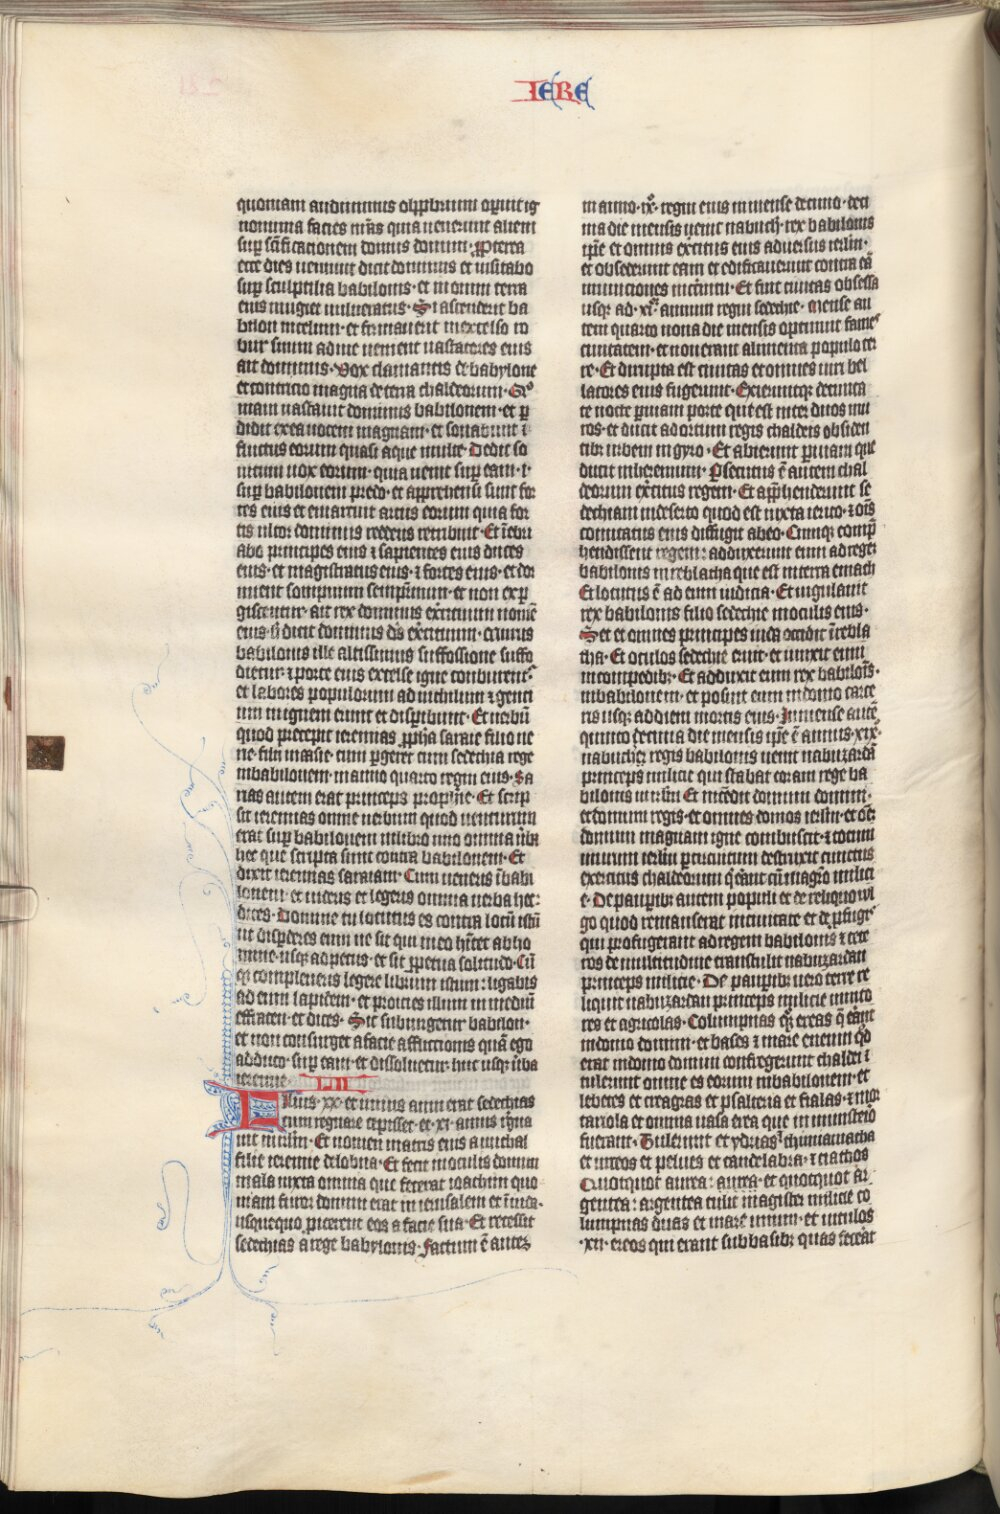 IERE
quoniam audiuimus obprbrium operuit ig
nominia facies nr̄as quia uenerunt alieni
sup̄ sc̄ificationem domus domini· Propterea
ecce dies ueniunt dicit dominus et uisitabo
sup̄ sculptilia babilonis· et in omni terra
eius mugiet uulneratus· Si ascenderit ba
bilon in celum· et firmauerit in excelso ro
bur suum a dme uenient uastatores eius
ait dominus· Vox clamantis de babylone
et contricio magna de terra chaldeorum· Qo
niam uastauit dominus babilonem· et p̄
didit ex ea uocem magnam· et sonabunt
fluctus eorum quasi aque multe· Dedit so
nitum uox eorum· quia uenit sup̄ eam· i·
sup̄ babilonem predo· et apprehensi sunt for
tes eius et emarcuit arcus eorum quia for
tis ultor dominus reddens retribuit· Et īebri
abo principes eius ⁊ sapientes eius duces
eius· et magistratus eius· ⁊ fortes eius· et dor
mient sompnum sempīnum· et non exp̄
giscentur· ait rex dominus exercituum nomē
eius· h̄ dicit dominus ds̄ exercituum· Murus
babilonis ille altissimus suffossione suffo
dietur· ⁊ porte eius excelse igne conburent᷒
et labores populorum ad nichilum ⁊ genti
um in ignem erunt et disp̄ibunt· Et uerbū
quod precepit ieremias ꝓph̄a saraie filio ne
rie· filii maasie· cum p̄geret cum sedechia rege
in babilonem· in anno quarto regni eius· Sa
rias autem erat princeps prophie· Et scrip
sit ieremias omne uerbum quod uenturum
erat sup̄ babilonem in libro uno omnia ūba
hec que scripta sunt contra babilonem· Et
dixit ieremias saraiam· Cum ueneris ī babi
lonem· et uideris et legeris omnia uerba hec:
dices· Domine tu locutus es contra locū istū
ut disp̄deres eum ne sit qui in eo hītet ab ho
mine usq̄ ad pecus· et sit ꝑpetua solitudo· Cū
q̄ compleueris legere librum istum: ligabis
ad eum lapidem· et proicies illum in mediū
effraten· et dices· Sic submergetur babilon·
et non consurget a facie afflictionis quā ego
adduco sup̄ eam· et dissoluetur· huc usq̄ ūba
ieremie· LII
Filius· xx· et unius anni erat sedechias
cum regnare cepisset· et xi· annis regna
uit in ierlīm· Et nomen matris eius amithal
filie ieremie de lobna· Et fecit in oculis domini
mala iuxta omnia que fecerat ioachim quo
niam furor domini erat in ierusalem et ī iuda·
usquequo piceret eos a facie sua· Et recessit
sedechias a rege babylonis· Factum ē autē
in anno· ix· regni eius in mense decimo· deci
ma die mensis uenit nabuch· rex babilonis
ip̄e et omnis exc̄itus eius aduersus ierlīm·
et obsederunt eam et edificauerunt contra eā
municiones in circuitu· Et fuit ciuitas obsessa
usq̄ ad· xi· annum regni sedechie· Mense au
tem quarto nona die mensis optinuit fames
ciuitatem· et non erant alimenta populo ter
re· Et dirupta est ciuitas et omnes uiri bel
latores eius fugerunt· Exieruntq̄ de ciuita
te nocte p̄ uiam porte que est inter duos mu
ros· et ducit ad ortum regis chaldeis obsiden
tibꝫ urbem in gyro· Et abierunt p̄ uiam que
ducit in heremum· ꝑsecutus ē autem chal
deorum exc̄itus regem· Et app̄henderunt se
dechiam in deserto quod est iuxta ierico· ⁊ oīs
comitatus eius diffugit ab eo· Cumq̄ comp̄
hendissent regem: adduxerunt eum ad regem
babilonis in reblatha que est in terra emath
Et locutus ē ad eum iudicia· Et iugulauit
rex babilonis filio sedechie in oculis eius·
Set et omnes principes iuda occidit ī rebla
tha· Et oculos sedechie eruit· et uinxit eum
in compedibꝫ· Et adduxit eum rex babilōs·
in babilonem· et posuit eum in domo carce
ris usq̄ ad diem mortis eius· In mense autē
quinto decima die mensis ip̄e ē annus· xix·
nabuchꝫ regis babilonis uenit nabuzardā
princeps milicie qui stabat coram rege ba
bilonis in ierlīm Et incēdit domum domini·
et domum regis· et omnes domos ierlīm· et oēm
domum magnam igne conbuscit· ⁊ totum
murum ierlīm p̄ circuitum destruxit cunctus
exercitus chaldeorum q̄ erāt cū magr̄o milici
e· De paupibꝫ autem populi et de reliquo wl
go quod remanserat in ciuitate et de p̄fugis
qui profugerant ad regem babilonis ⁊ cete
ros de multitudine transtulit nabuzardan
princeps milicie· De paupibꝫ uero terre re
liquit nabuzardan princeps milicie uinito
res et agricolas· Columpnas qꝫ ereas q̄ erant
in domo domini· et bases ⁊ mare eneum qd̄
erat in domo domini confregerunt chaldei ⁊
tulerunt omne es eorum in babilonem· et
lebetes et creagras et psalteria et fialas· ⁊ mor
tariola et omnia uasa erea que in ministerio
fuerant· Tulerunt et ydrias ⁊ thimiamatha
et urceos et pelues et candelabra· ⁊ ciathos
Quotquot aurea: aurea· et quotquot ar
gentea: argentea tulit magister milicie co
lumpnas duas et mare unum· et uitulos
·xii· ereos qui erant sub basibꝫ quas fecerat